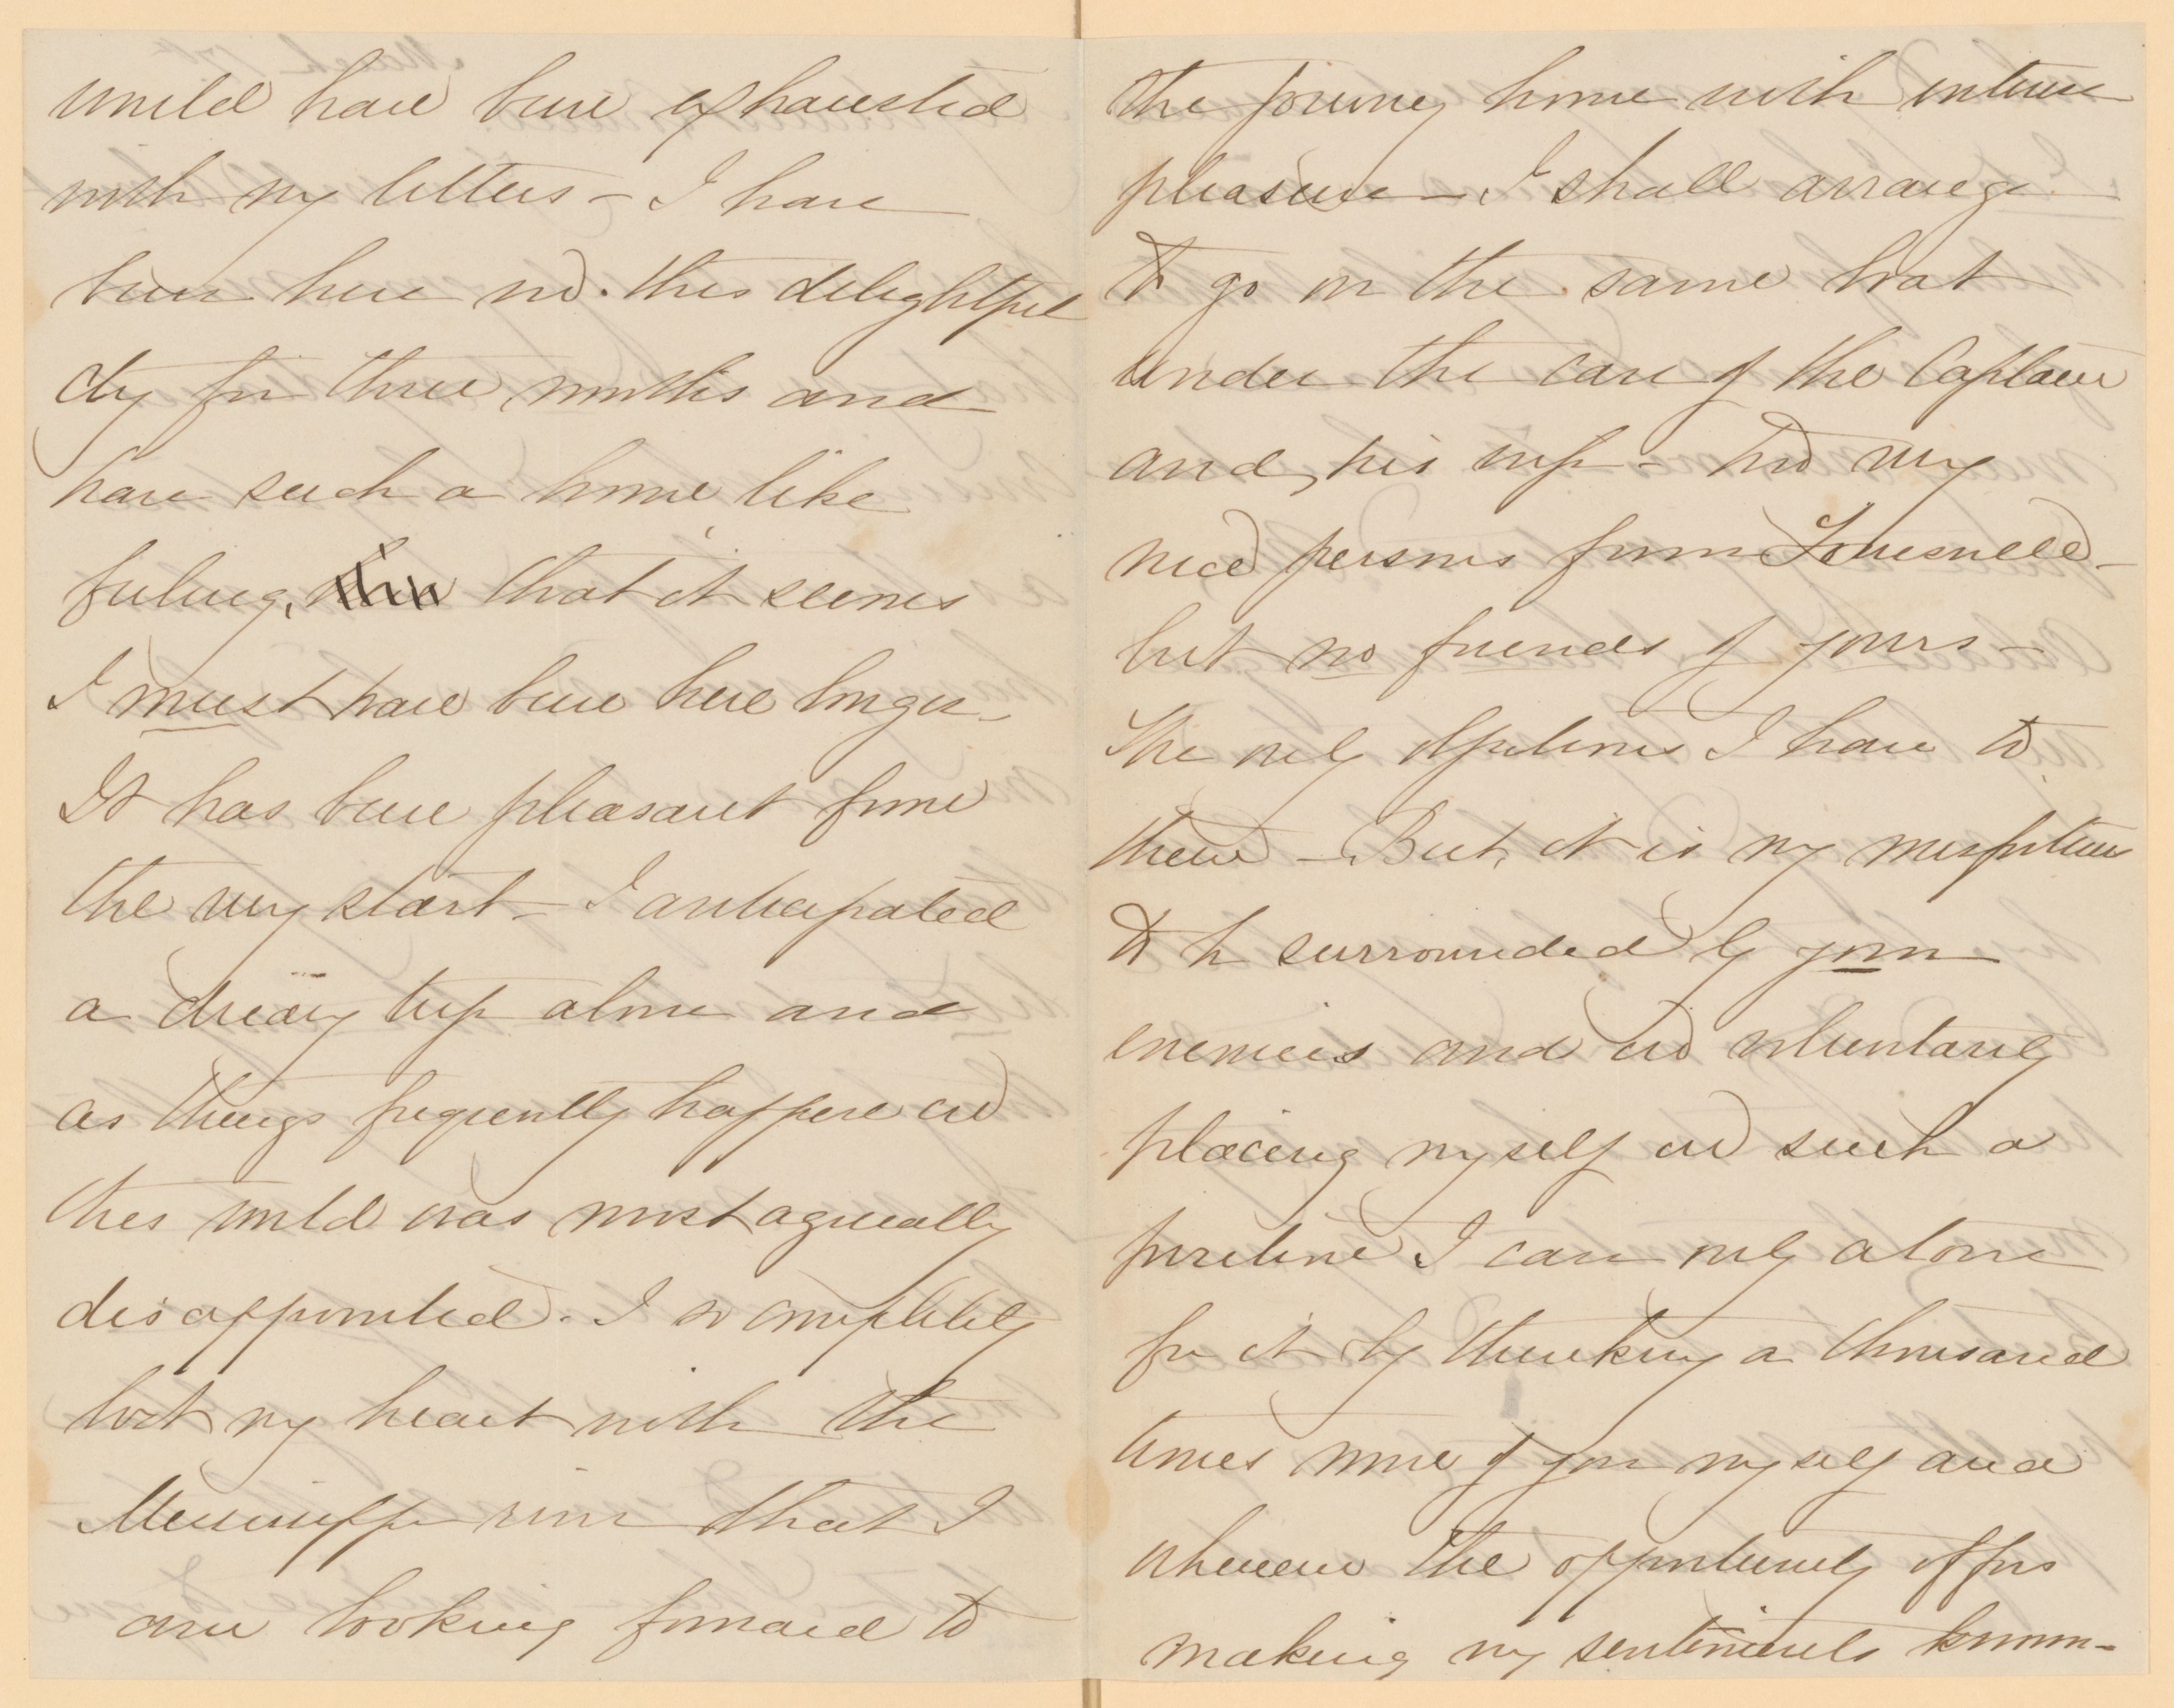 would have been exhausted
with my letters – I have
been here in this delightful
city for three months and
have such a home like
feeling, that it seems
I must have been here longer –
It has been pleasant from
the very start – I anticipated
a dreary trip alone and
as things frequently happen in
this world was most agreeably
disappointed. I so completely
lost my heart with the
Mississippi river that I
am looking forward to
the journey home with intense
pleasure – I shall arrange
to go on the same boat
under the care of the Captain
and his wife – two very
nice persons from Louisville –
but no friends of yours –
The only objections I have to
them – But, it is my misfortune
to be surrounded by your
enemies and in voluntarily
placing myself in such a
position I can only atone
for it by thinking a thousand
times more of you myself and
whenever the opportunity offers
making my sentiments known –